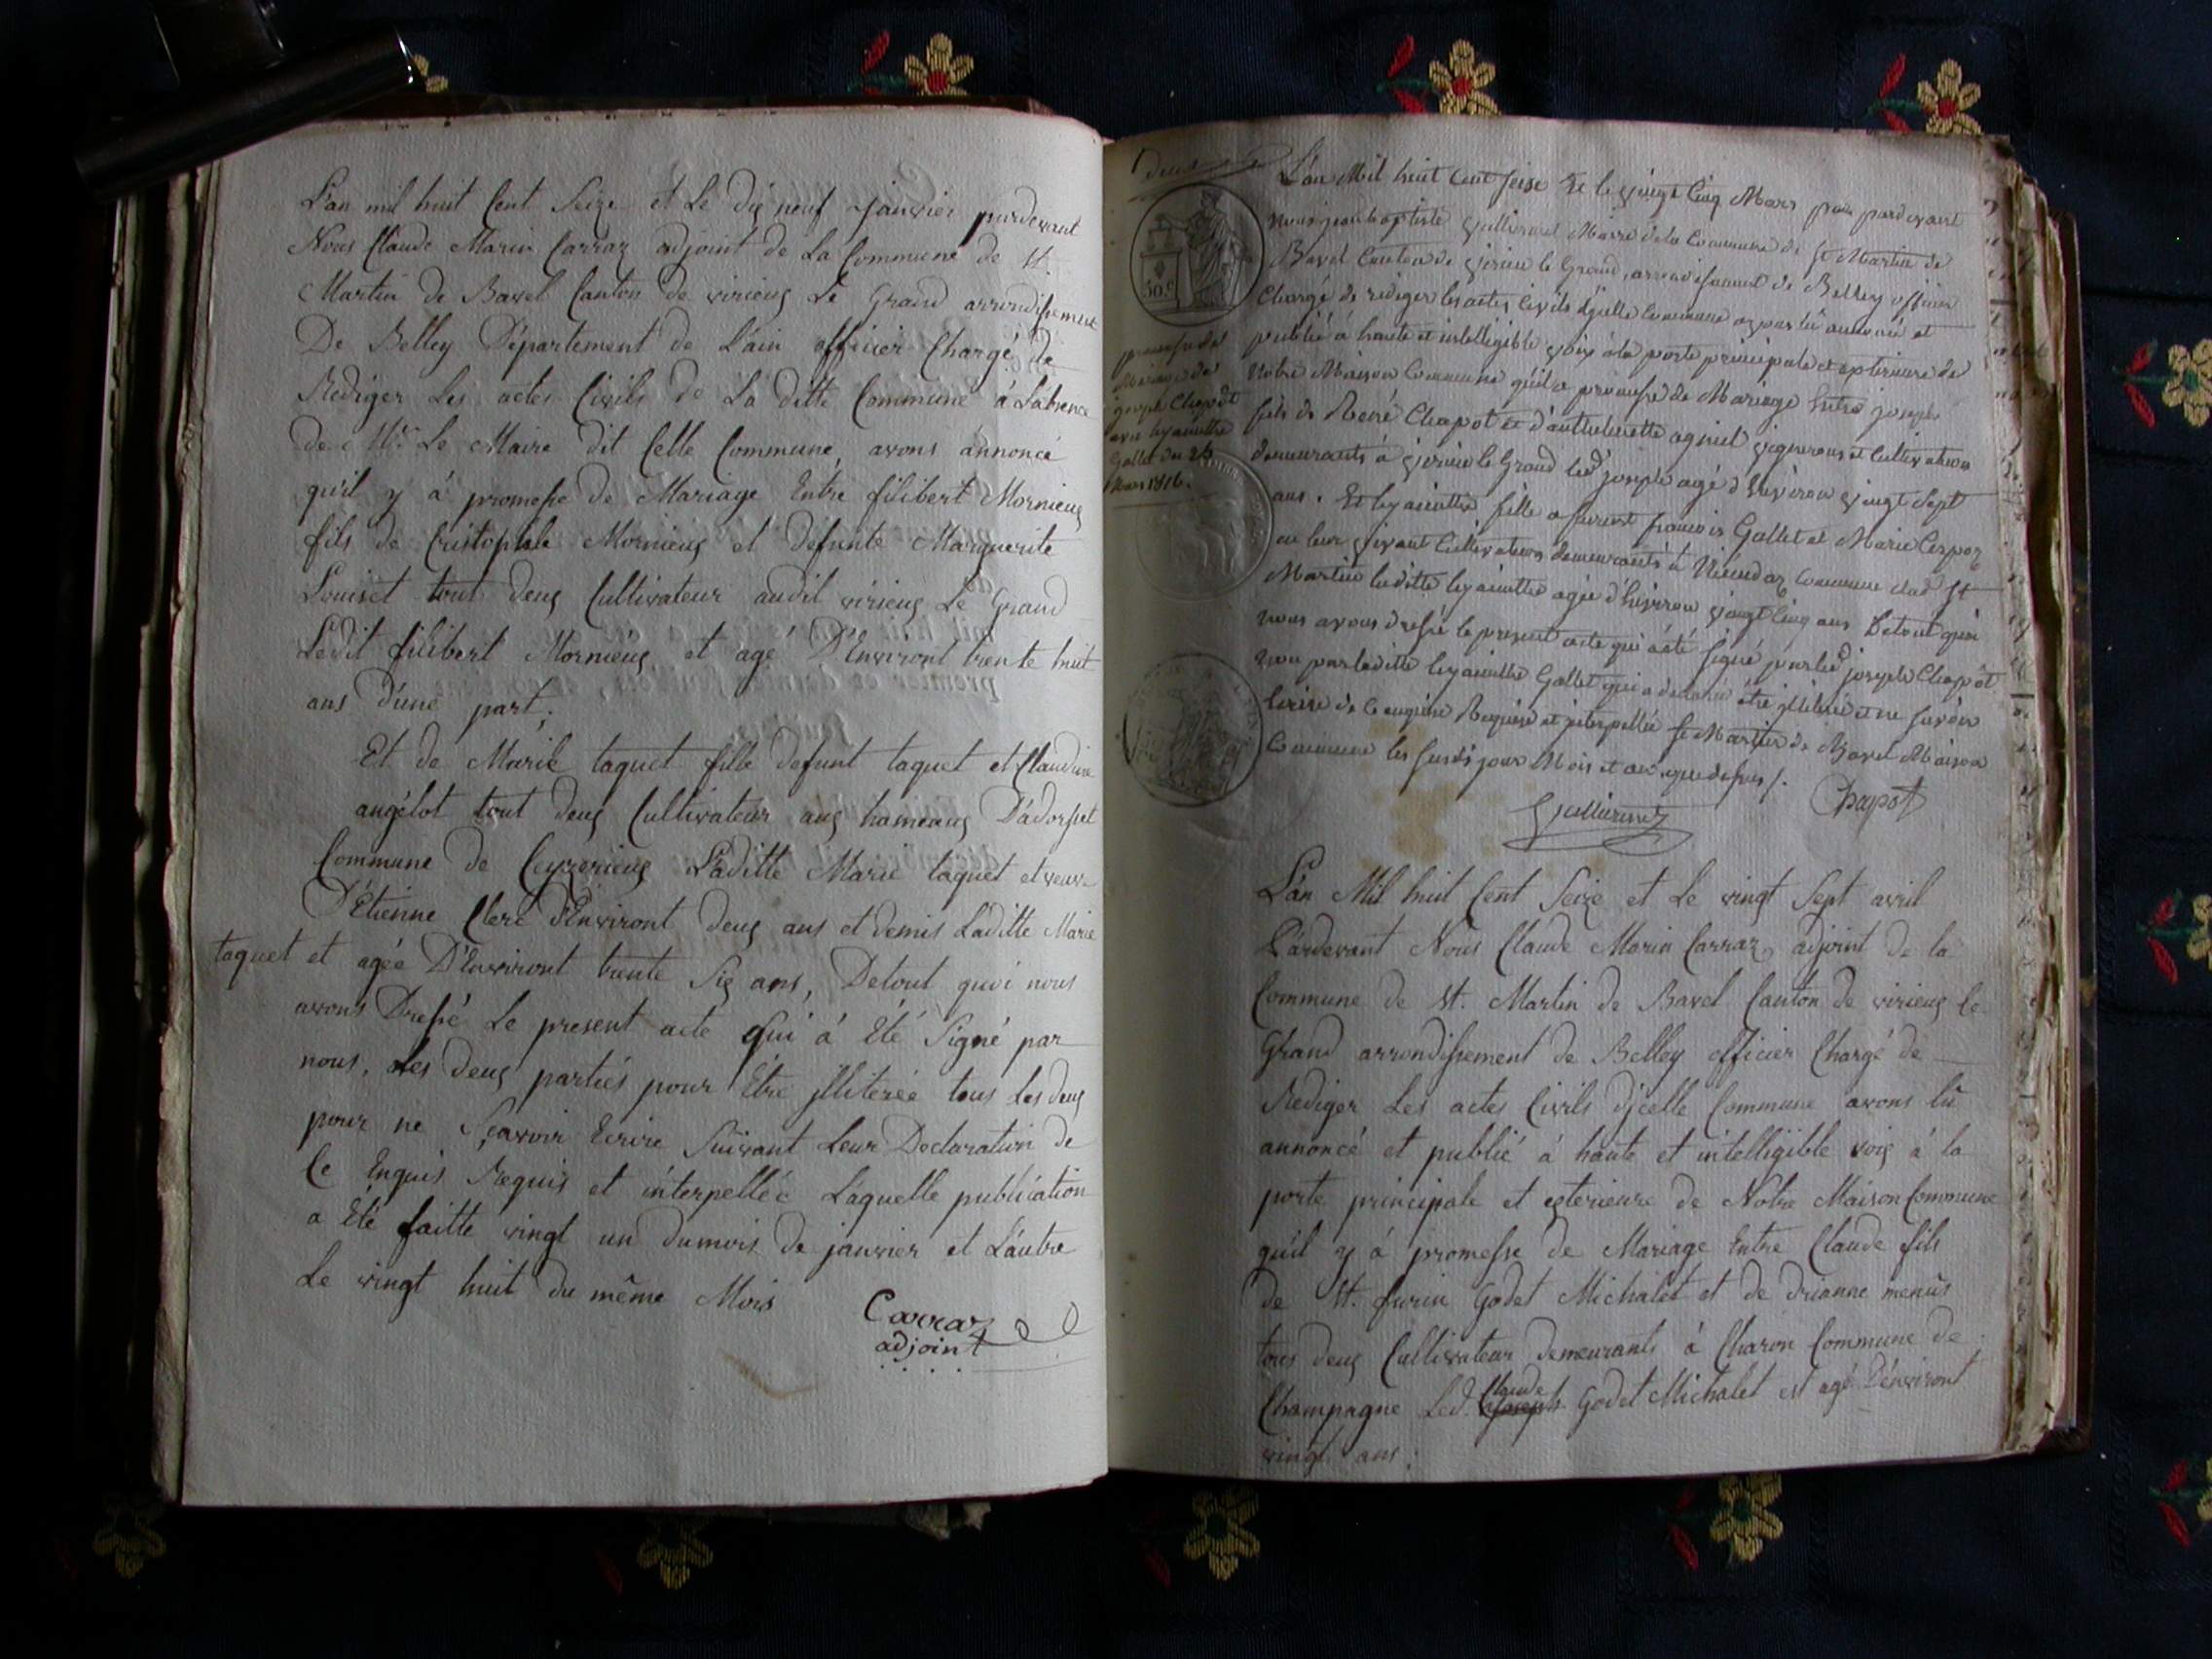 L'an mil huit Cent Seize et Le dix neuf janvier pardevant
Nous Claude Marin Carraz adjoint de La Commune de St.
Martin de Bavel Canton de virieux Le Grand arrondissement
De Belley Département de L'ain officier Chargé de
Rediger Les actes Civils de La ditte Commune à L'absence
de Mr. Le Maire dit Celle Commune, avons annoncé
qu'il y à promesse de Mariage Entre filibert Mornieux
fils de Cristophle Mornieux et défunte Marguerite
Louiset tout deux Cultivateur audit virieux Le Grand
Ledit filibert Mornieux et agé D'Environt trente huit
ans d'une part;
Et de Marie taquet fille defunt taquet et Claudine
angélot tout deux Cultivateur aux hameaux D'adorset
Commune de Ceyzerieux Laditte Marie taquet et veuve
D'Etienne Clerc d'Environt deux ans et demis Laditte Marie
taquet et agée D'Environt trente Six ans, Detout quoi nous
avons Dressé Le present acte qui à Eté Signé par
nous, Les deux partiés pour Etre jlliterée tous les deux
pour ne Sçavoir Ecrire Suivant Leur Declaration de
Ce Enquis Requis et interpellée Laquelle publication
a Eté faitte vingt un dumois de janvier et L'autre
Le vingt huit du même Mois
Carraz
adjoint
deux
30.c
promesse de
Mariage de
joseph Chapot
avec hyacinthe
Gallet du 25
Mars 1816.
L'an Mil huit Cent Seize Et le vingt Cinq Mars pardevant
Nous jean baptiste Maire dela Commune de St Martin de
Bavel Canton de virieu le Grand, arrondissement de Belley officier
Chargé de rédiger les actes Civils djcelle Commune lû annoncé et
publié à haute et intelligible voix à la porte principale et extérieure de
Notre Maison Commune qu'il a promesse de Mariage Entre joseph
fils de Chapot et d'anthelmette vignerons et Cultivateurs
demeurants à virieu le Grand led joseph agé d'Environ vingt Sept
ans. Et hyacinthe fille a françois Gallet et Marie
en leur vivant Cultivateurs demeurants à Commune dud St
Martin laditte hyacinthe agée d'Environ vingt Cinq ans Detout quoi
nous avons dressé le present acte qui à été signé par led joseph Chapôt
non par laditte hyacinthe Gallet qui a declaré être jlliterée et ne savoir
Ecrire de Ce enquise Requise et jnterpellée St Martin de Bavel Maison
Commune les susdis jour Mois et an que dessus /.
Chapot
L'an Mil huit Cent Seize et Le vingt Sept avril
Pardevant Nous Claude Marin Carraz adjoint de la
Commune de St. Martin de Bavel Canton de virieux le
Grand arrondissement de Belley officier Chargé de
Rediger Les actes Civils djcelle Commune avons lû
annoncé et publié à haute et intelligible voix à la
porte principale et exterieure de Notre Maison Commune
qu'il y à promesse de Mariage Entre Claude fils
de St. furin Godet Michalet et de drianne menûs
tous deux Cultivateur demeurants à Charon Commune de
Champagne Led. Claude Godet Michalet est agé D'environt
vingt ans;